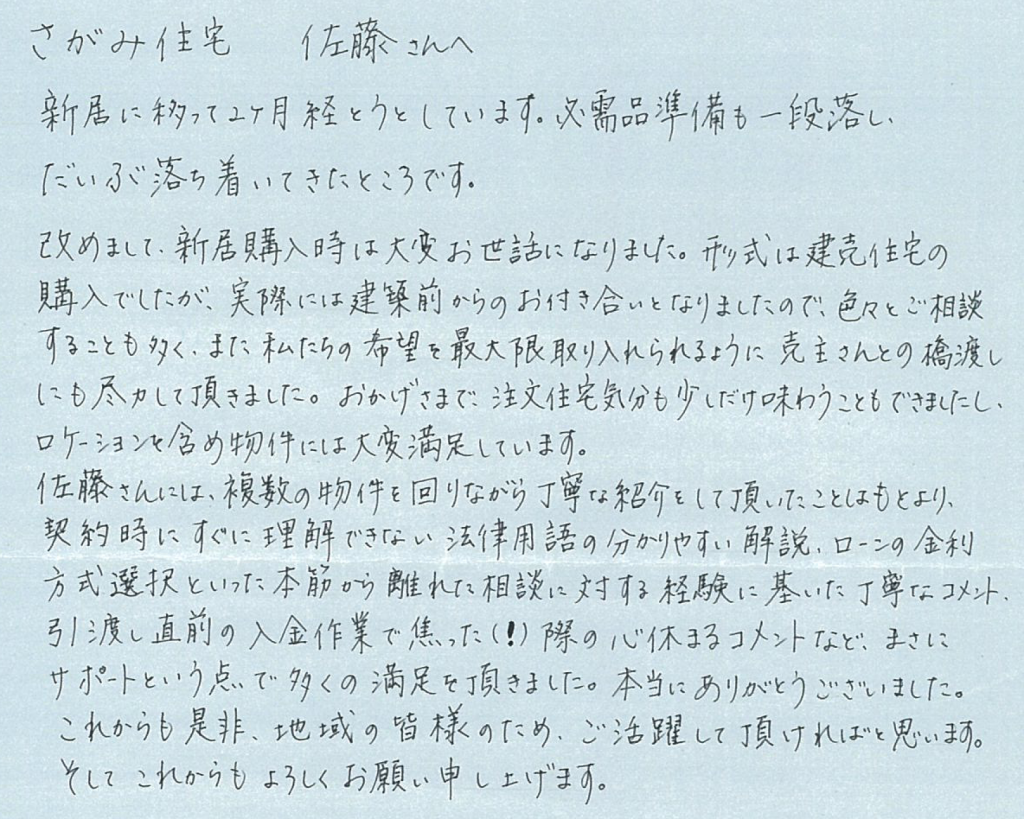 さがみ住宅　佐藤さんへ
新居に移って2ヶ月経とうとしています。必需品準備も一段落し、
だいぶ落ち着いてきたところです。
改めまして、新居購入時は大変お世話になりました。形式は建売住宅の
購入でしたが、実際には建築前からのお付き合いとなりましたので、色々とご相談
することも多く、また私たちの希望を最大限取り入れられるように売主さんとの橋渡し
にも尽力して頂きました。おかげさまで、注文住宅気分も少しだけ味わうこともできましたし、
ロケーションを含め物件には大変満足しています。
佐藤さんには、複数の物件を回りながら丁寧な紹介をして頂いたことはもとより、
契約時にすぐに理解できない法律用語の分かりやすい解説、ローンの金利
方式選択といった本筋から離れた相談に対する経験に基いた丁寧なコメント、
引渡し直前の入金作業で焦った(!)際の心休まるコメントなど、まさに
サポートという点で多くの満足を頂きました。本当にありがとうございました。
これからも是非、地域の皆様のため、ご活躍して頂ければと思います。
そしてこれからもよろしくお願い申し上げます。